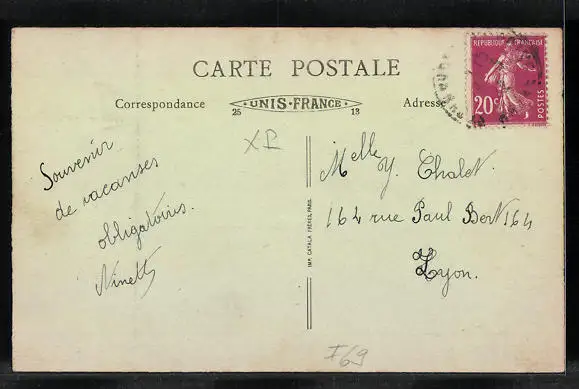 CARTE POSTALE
Correspondance
UNIS-FRANCE
25
13
Adresse
REPUBLIQUE FRANÇAISE
20c
POSTES
XP
Souvenir
de vacanses
obligatoires.
Ninette
Melle Y. Chalet.
164 rue Paul Bert 164
Lyon.
IMP. CATALA FRÈRES, PARIS
I69